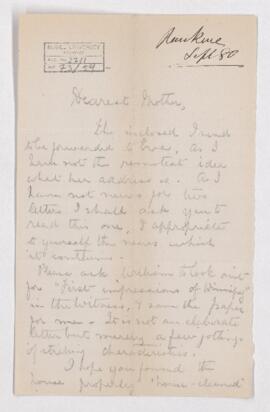 McGILL UNIVERSITY
ACC. NO. 2211
REF. 23/24
Rankine
Sept. 80
Dearest Mother,
The inclosed I send
to be forwarded to Eva, as I
have not the remotest idea
what her address is. As I
have not news for two
letters I shall ask you to
read this one, & appropriate
to yourself the news which
it contains.
Please ask William to look out
for "First impressions of Winnipeg"
in the Witness, & save the paper
for me. It is not an elaborate
letter but merely a few jottings
of striking characteristics.
I hope you found the
house properly "house-cleaned"